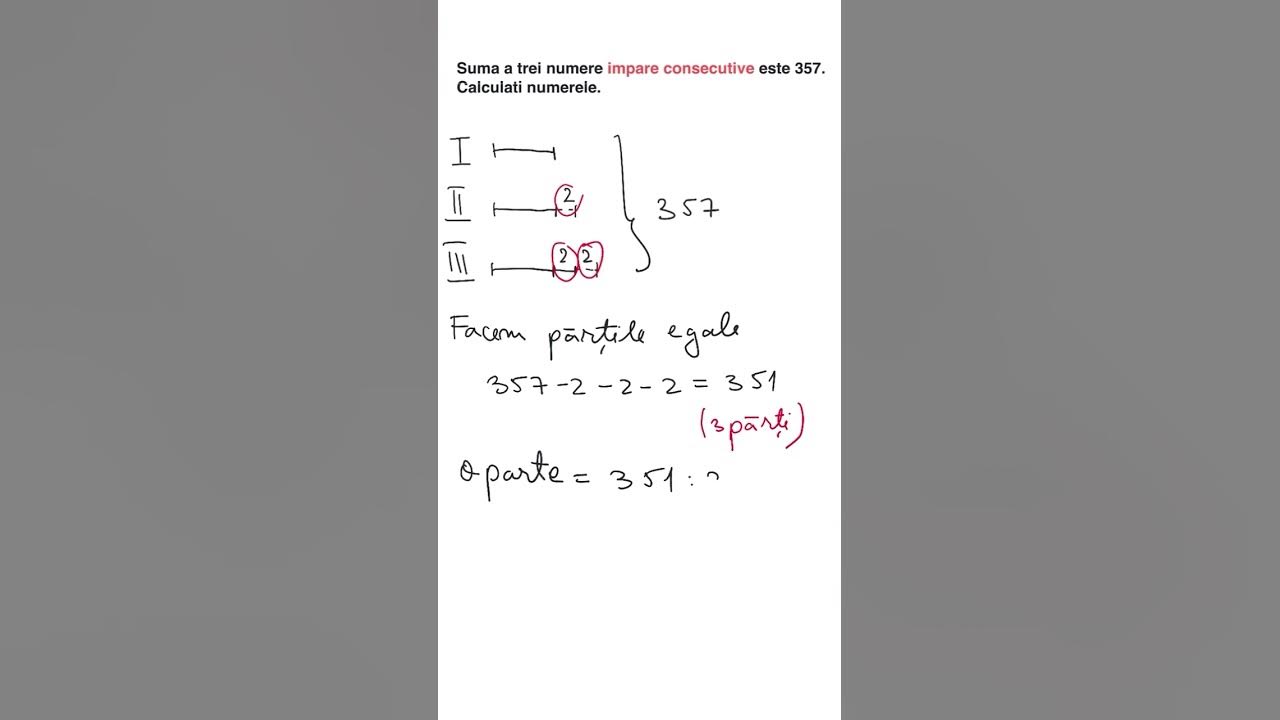 Suma a trei numere impare consecutive este 357.
Calculati numerele.
I
II 2
III 2 2
357
Facem părțile egale
357 - 2 - 2 - 2 = 351
(3 părți)
O parte = 351 :